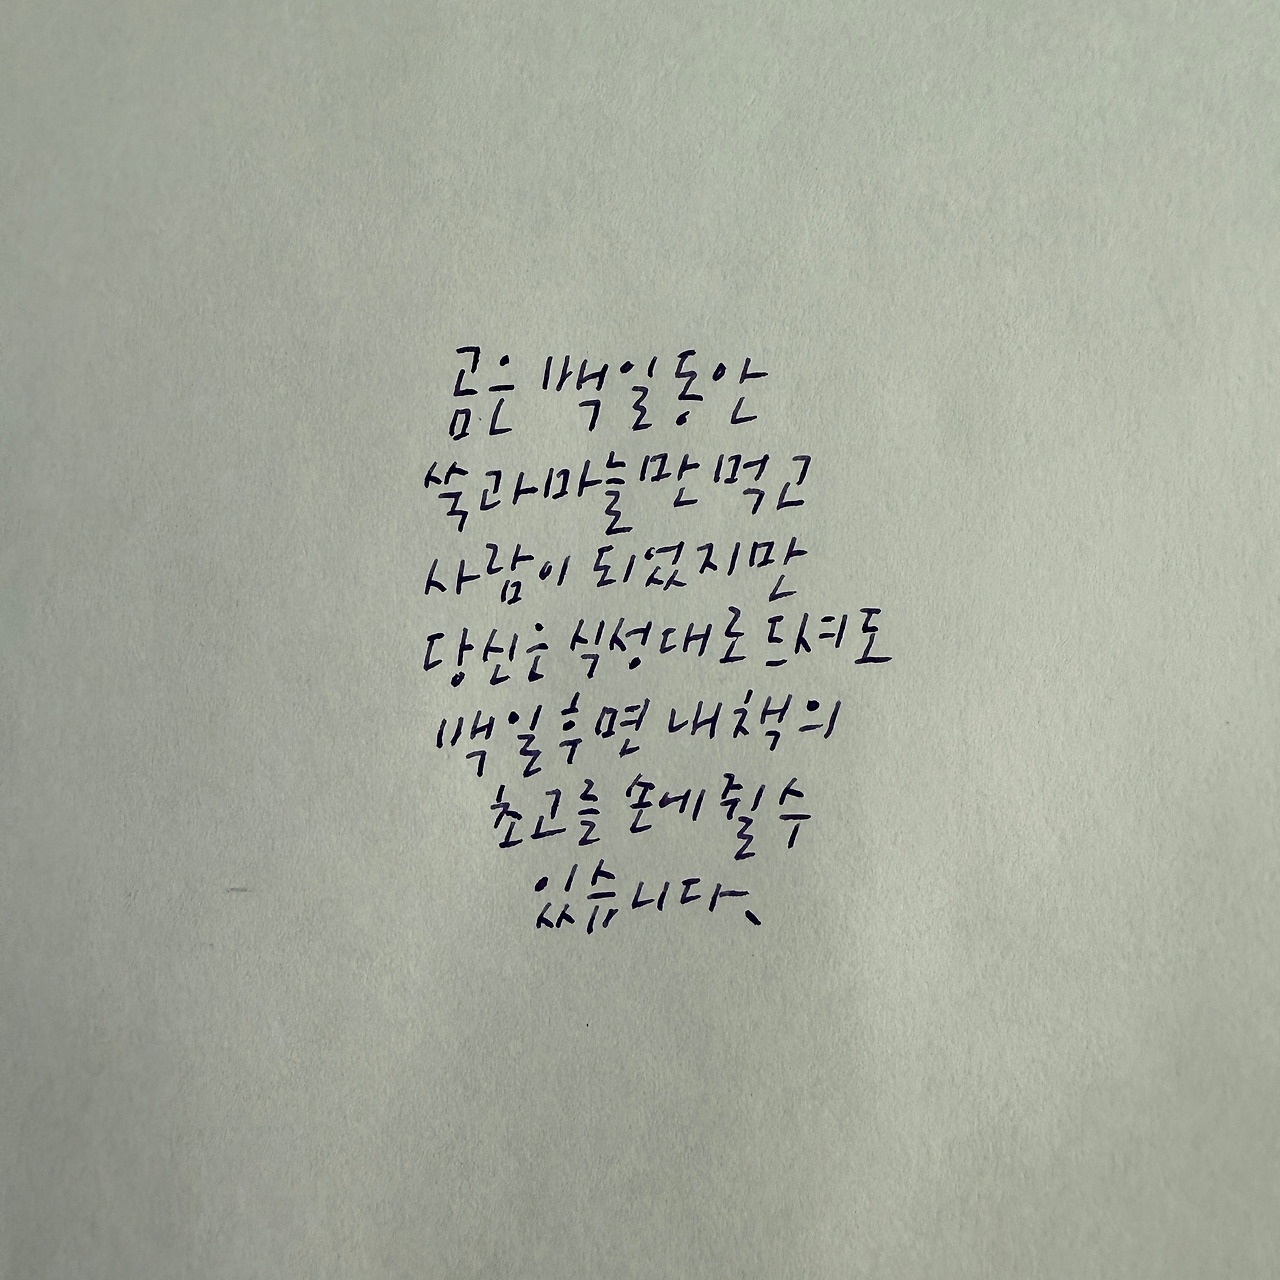 곰은 백일동안
쑥과마늘만 먹고
사람이 되었지만
당신은 식성대로 드셔도
백일후면 내책의
초고를 손에 쥘 수
있슈니다.